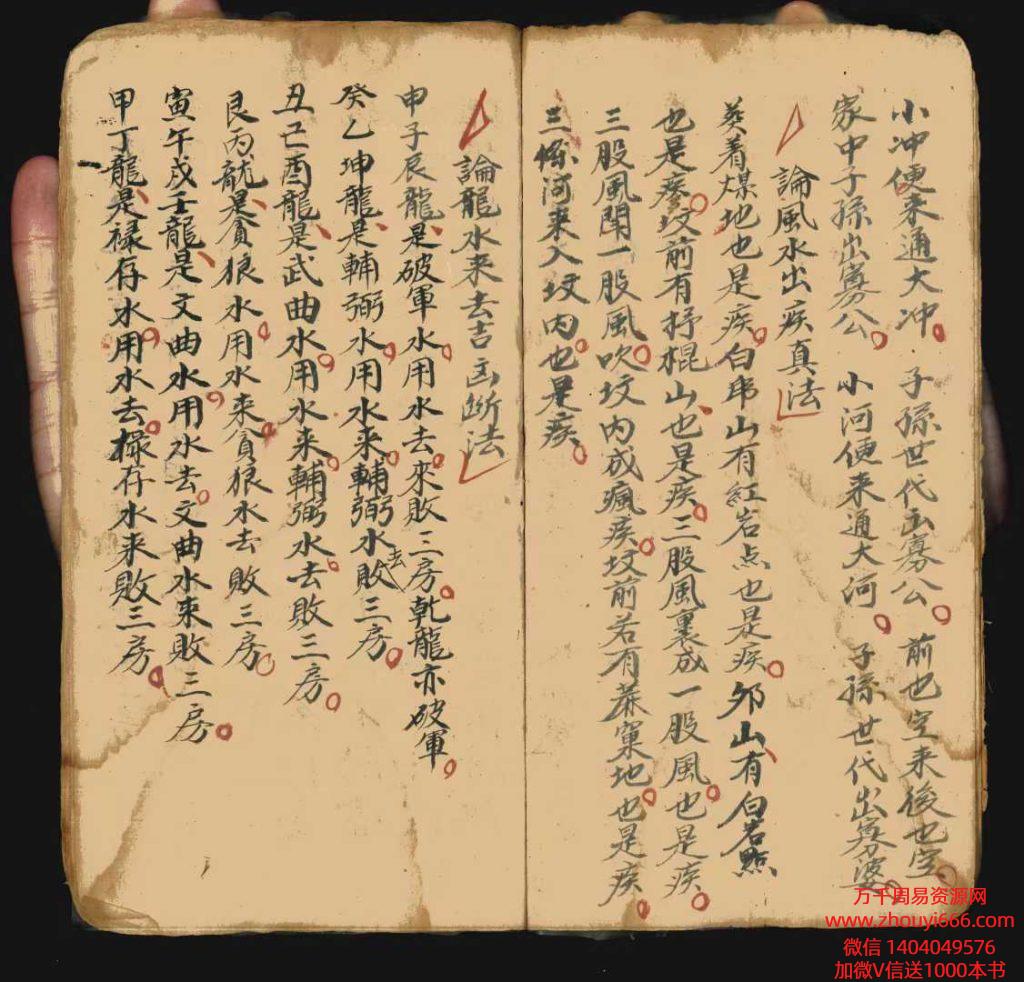 小冲便来通大冲 子孫世代出寡公 前也空来後也空
家中子孫出寡公 小河便来通大河 子孫世代出寡婆
論風水出疾真法
葵着煤地也是疾白虎山有紅岩点也是疾外山有白岩點
也是疾坟前有抒棍山也是疾三股風裏成一股風也是疾
三股風開一股風吹坟内成瘋疾坟前若有葬窠地也是疾
三條河来入坟内也是疾
論龍水来去吉凶断法
申子辰龍是破軍水用水去來敗三房乾龍亦破軍
癸乙坤龍是輔弼水用水来輔弼水去敗三房
丑己酉龍是武曲水用水来輔弼水去敗三房
艮丙龍是貪狼水用水来貪狼水去敗三房
寅午戌壬龍是文曲水用水去文曲水来敗三房
甲丁龍是禄存水用水去禄存水来敗三房
万千周易资源网
www.zhouyi666.com
微信 1404049576
加微V信送1000本书